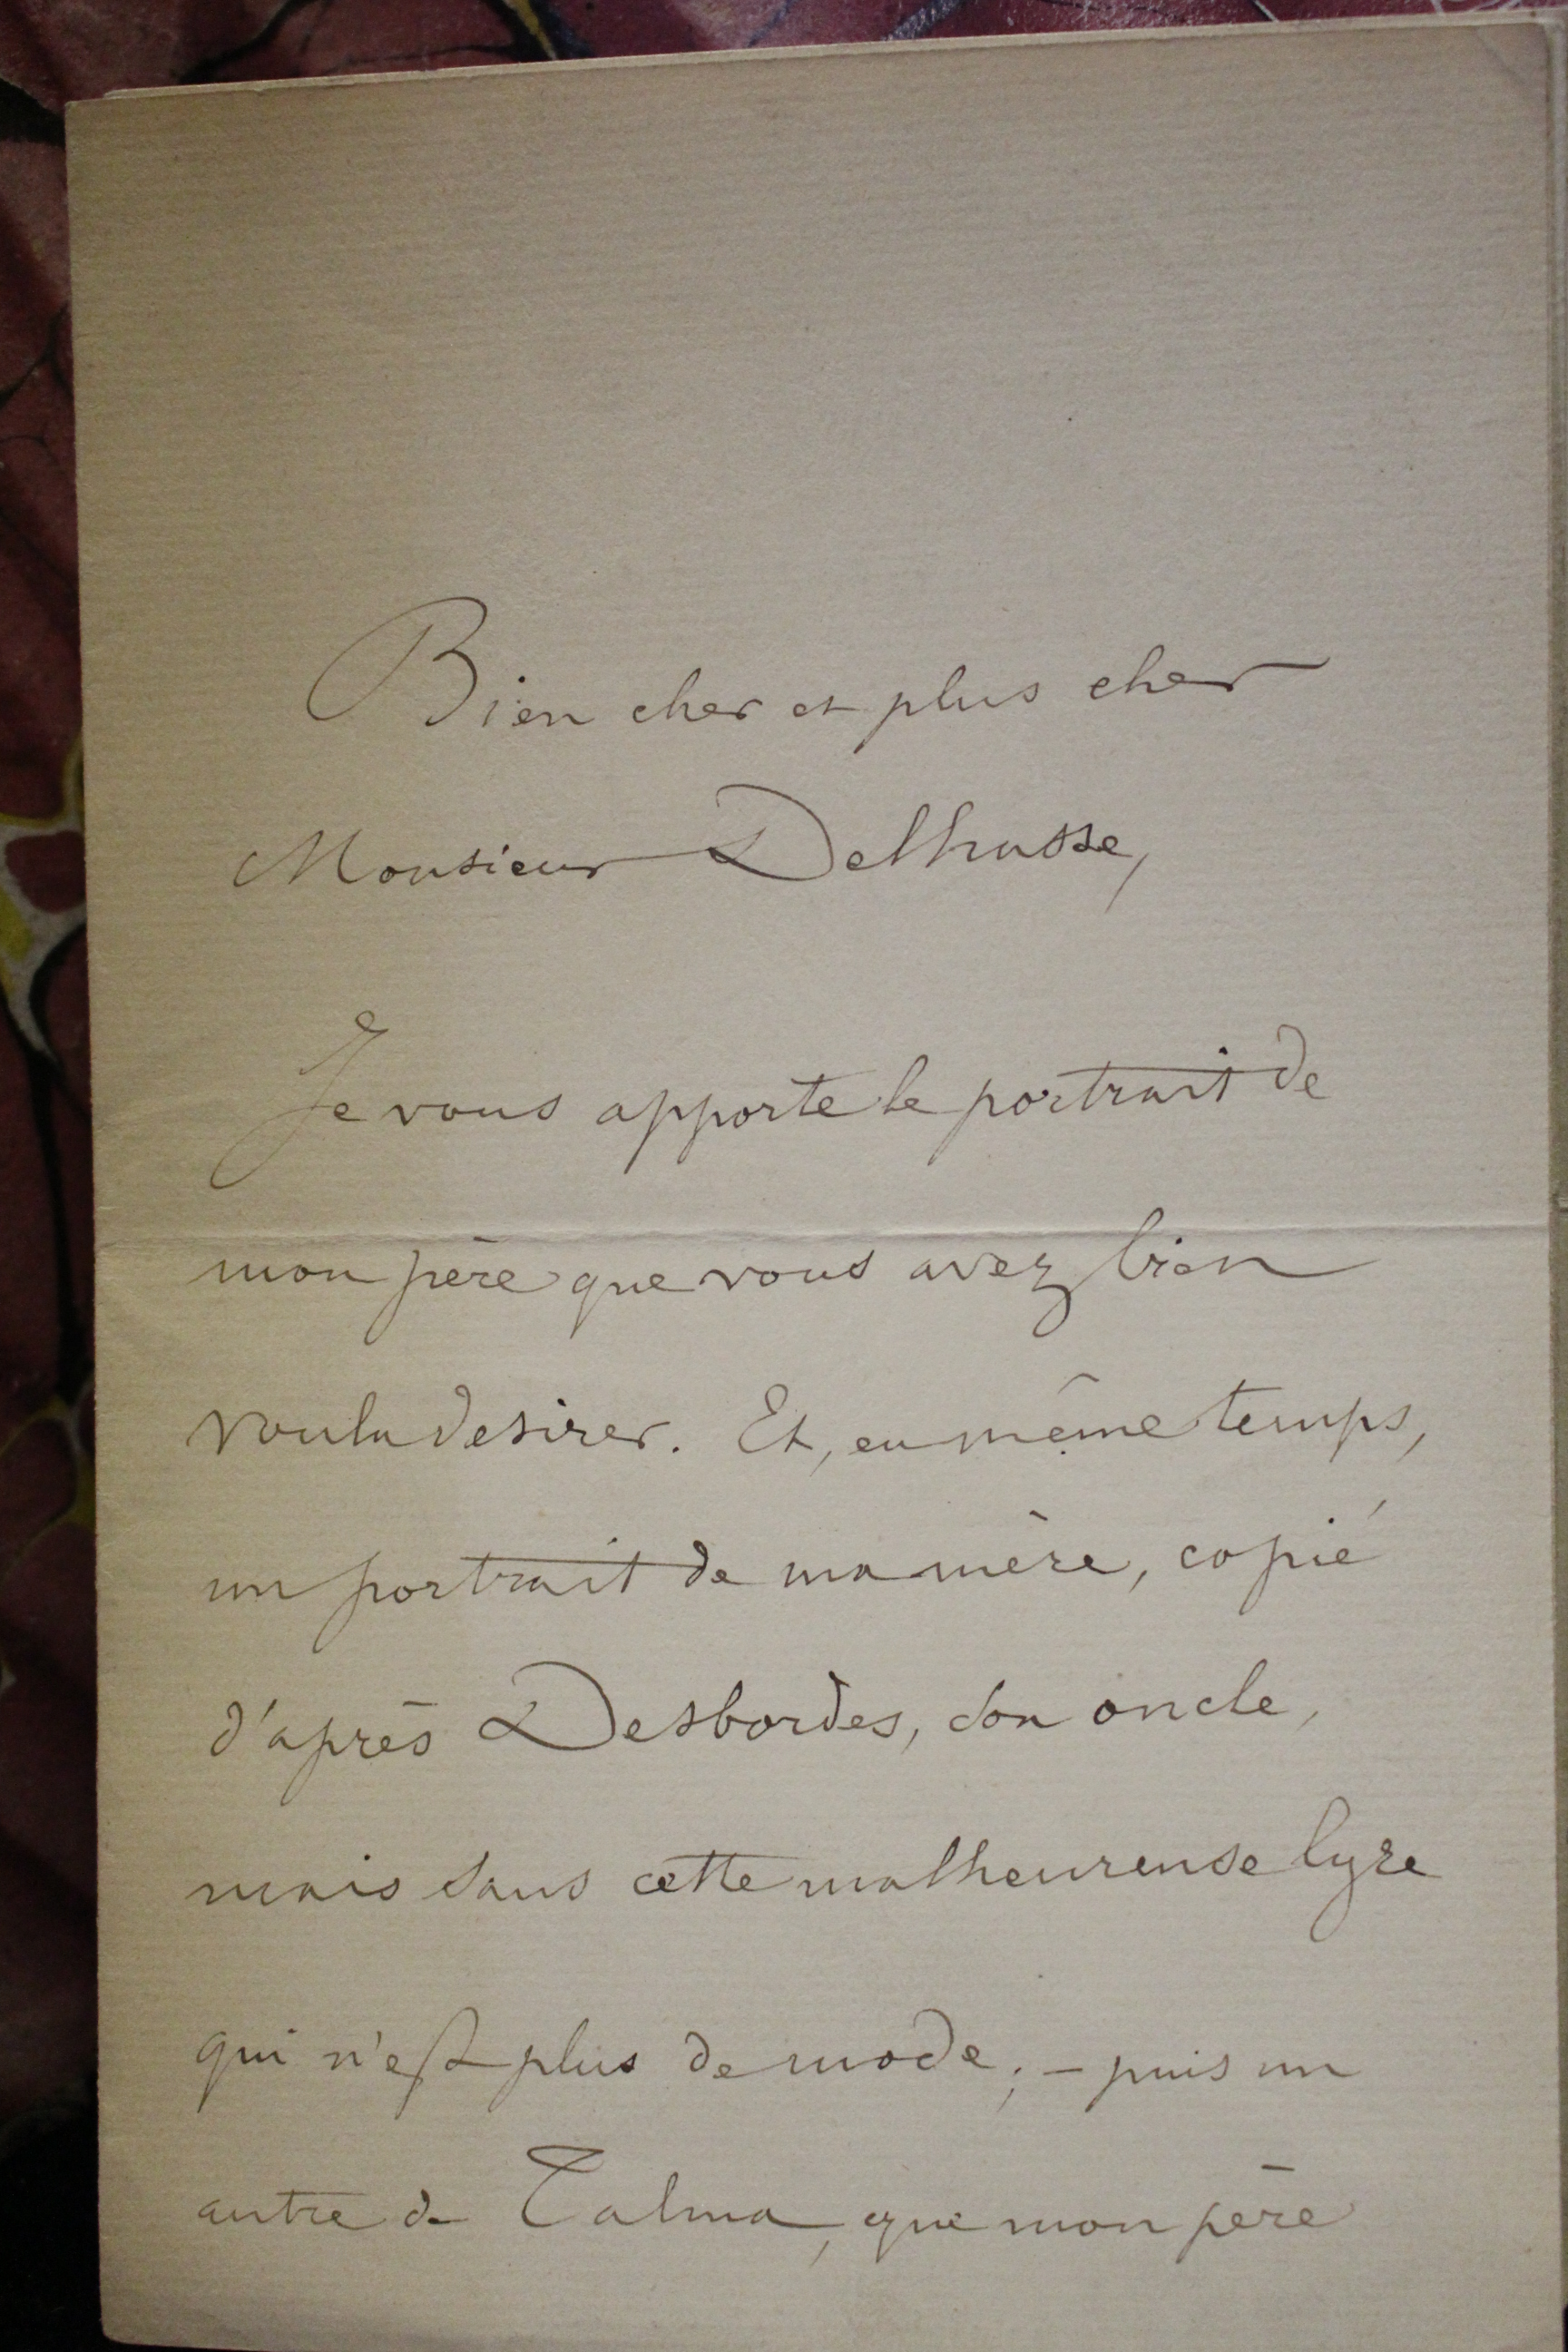 Bien cher et plus cher
Monsieur Delhasse,
Je vous apporte le portrait de
mon père que vous avez bien
voulu desirer. Et, en même temps,
un portrait de ma mère, copié
d'après Desbordes, son oncle,
mais sans cette malheureuse lyre
qui n'est plus de mode; – puis un
autre de Talma, que mon père